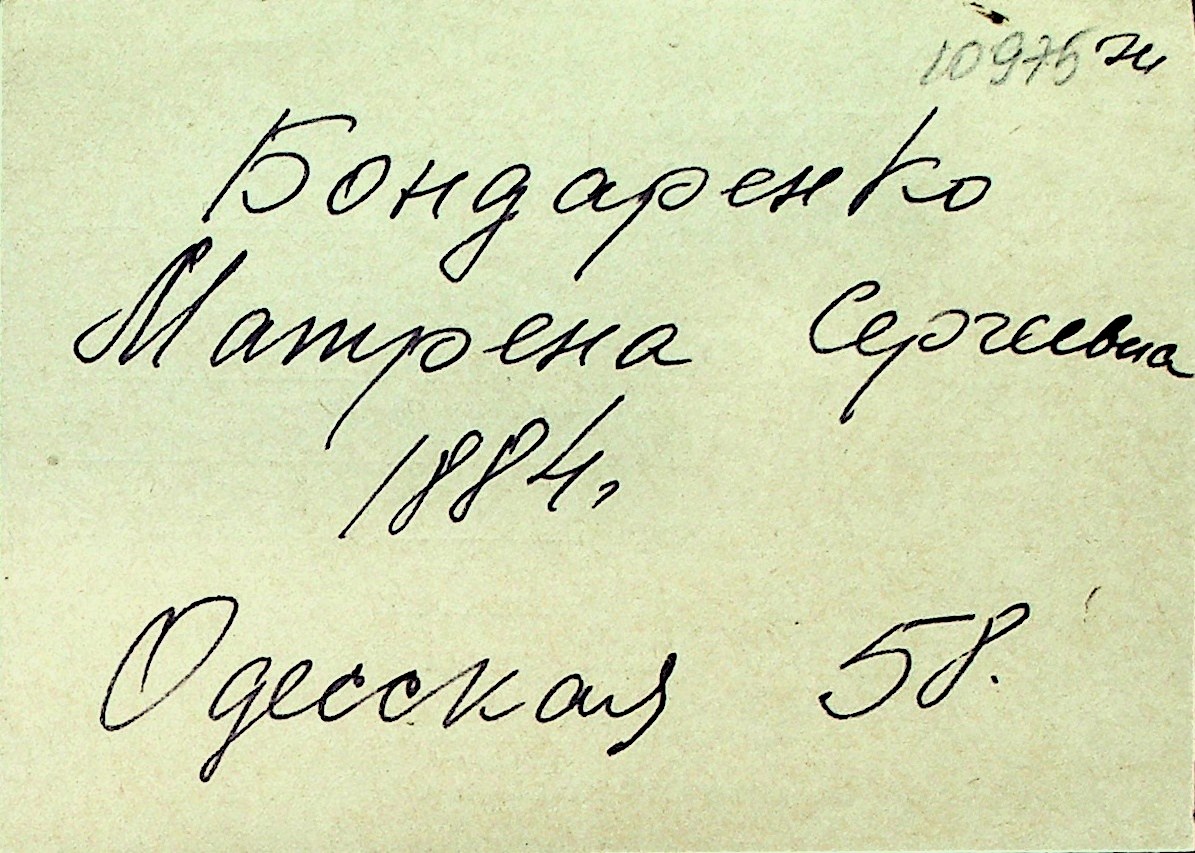 10975 н
Бондаренко
Матрена Сергеевна
1884,
Одесская 58.